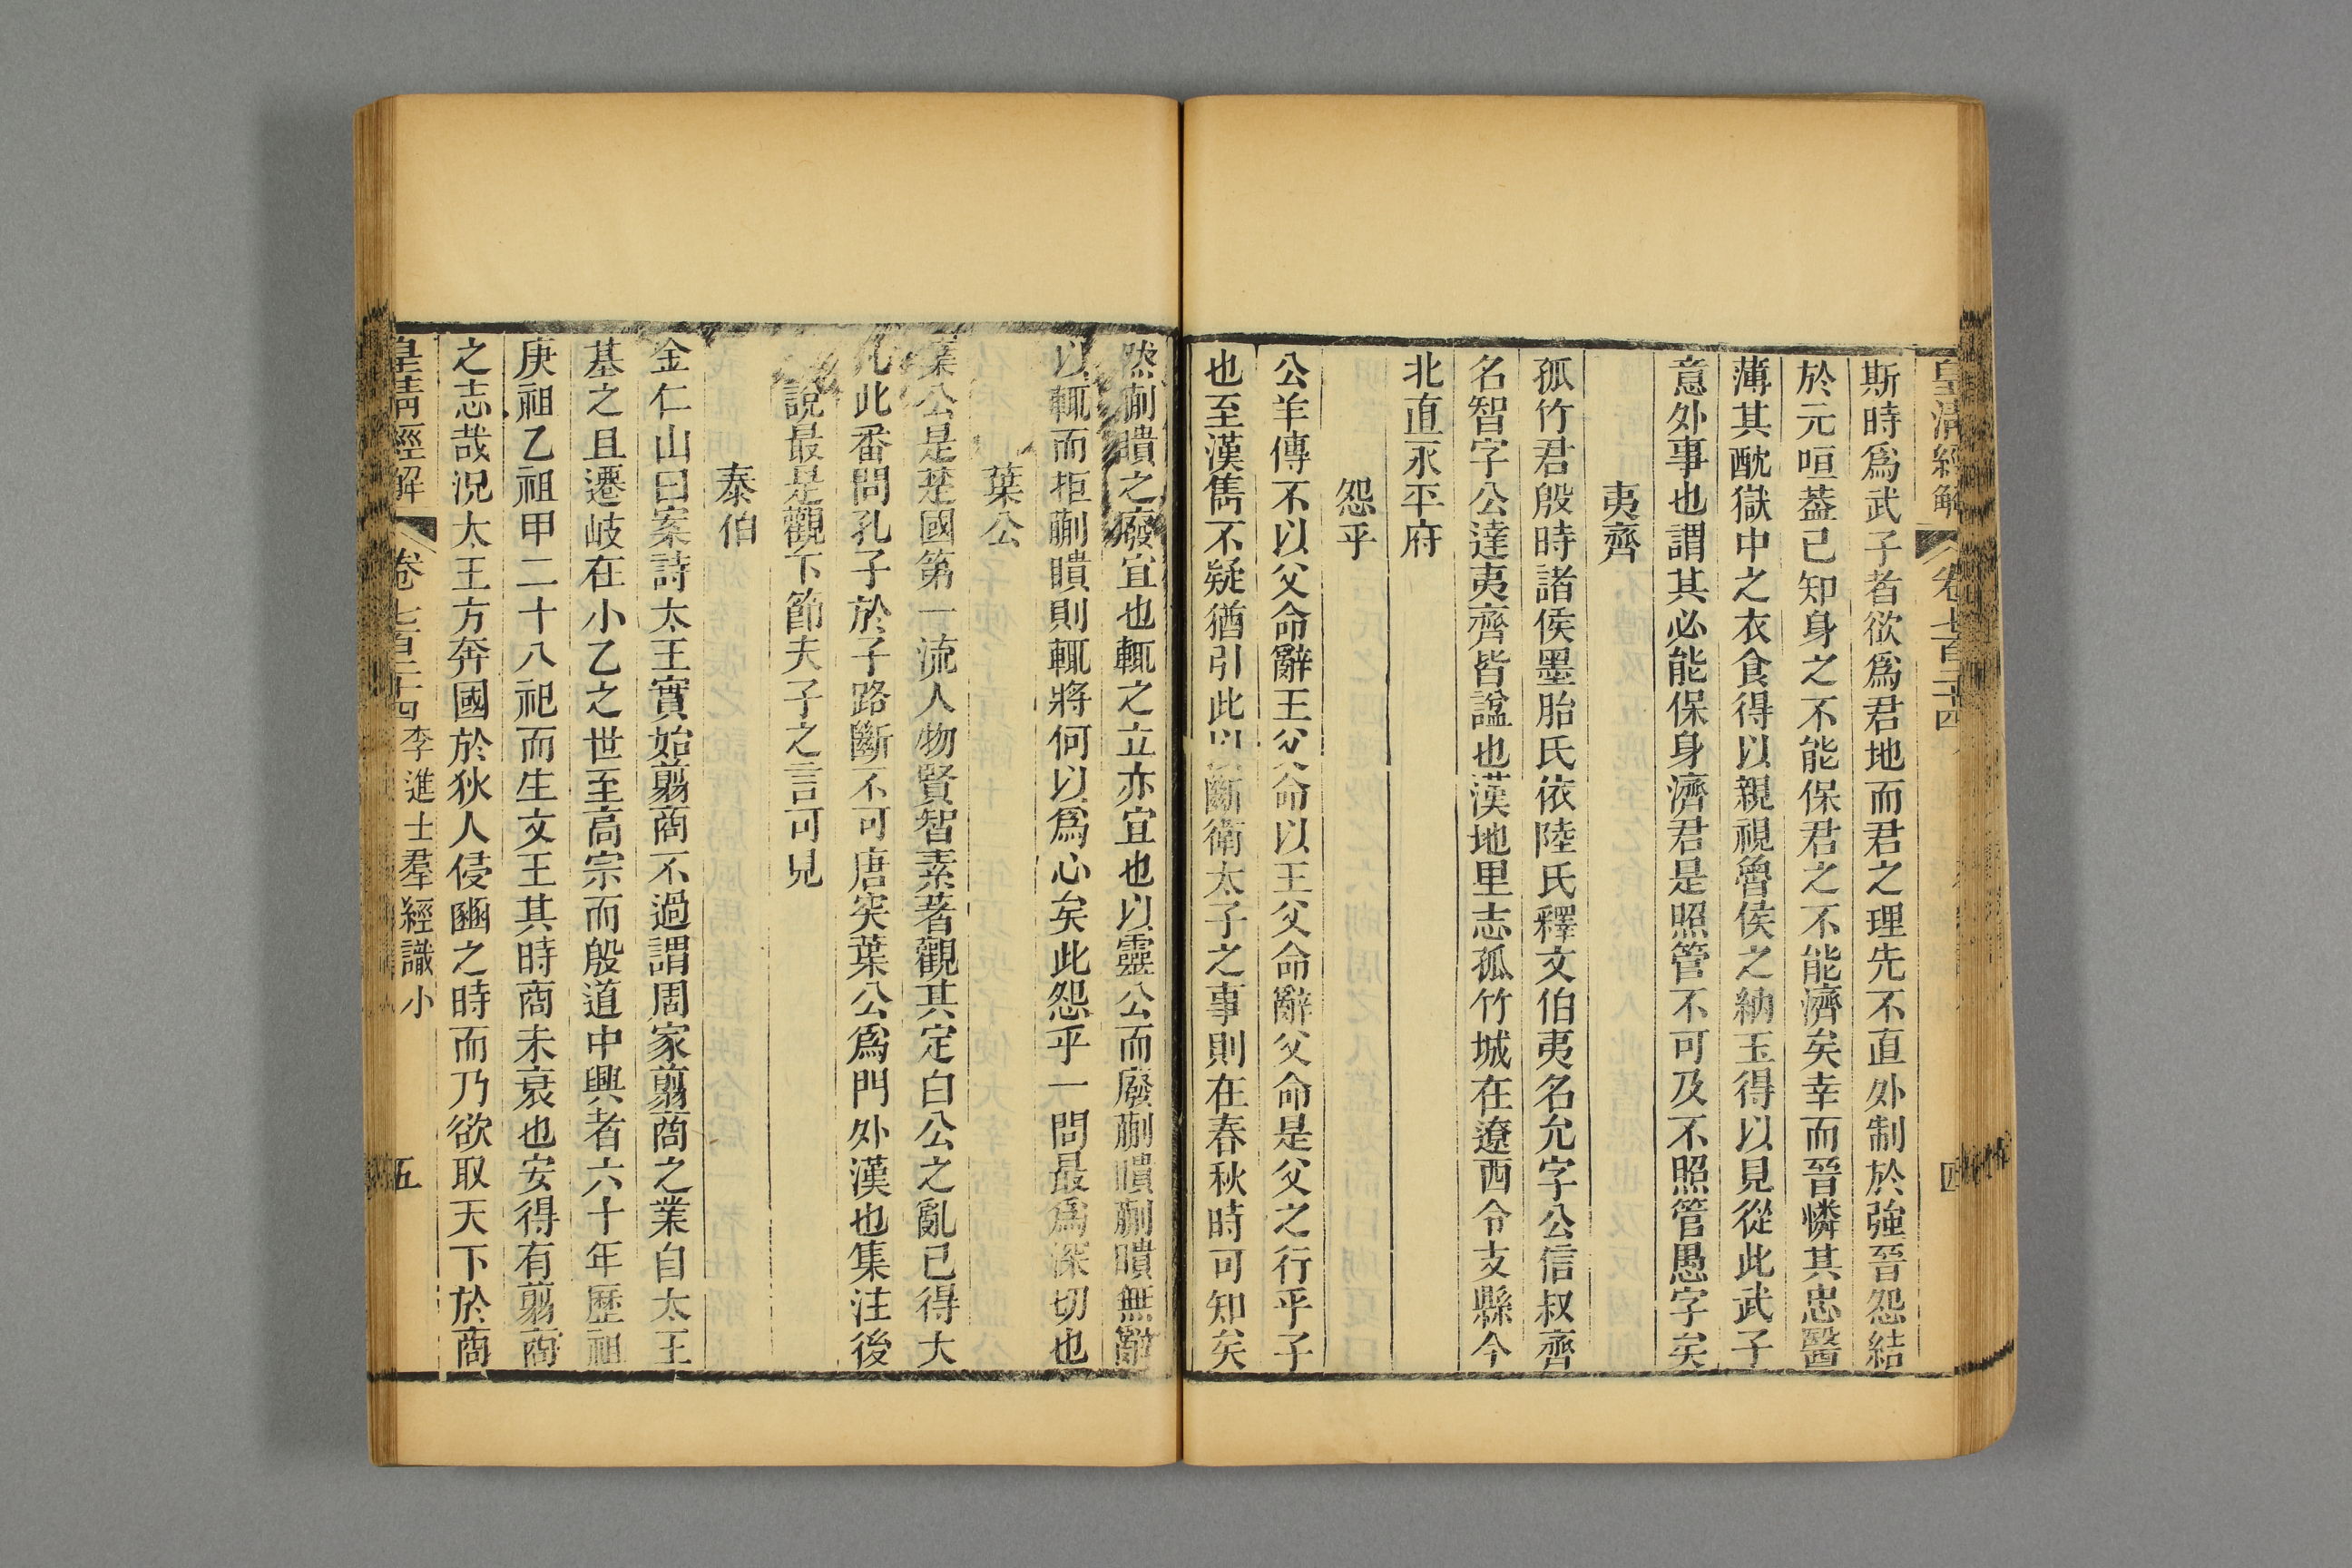 皇清經解 卷七百二十四 四
斯時爲武子者欲爲君地而君之理先不直外制於強晉怨結
於元咺葢已知身之不能保君之不能濟矣幸而晉憐其忠醫
薄其酖獄中之衣食得以親視魯侯之納玉得以見從此武子
意外事也謂其必能保身濟君是照管不可及不照管愚字矣
夷齊
孤竹君殷時諸侯墨胎氏依陸氏釋文伯夷名允字公信叔齊
名智字公達夷齊皆諡也漢地里志孤竹城在遼西令支縣今
北直永平府
怨乎
公羊傳不以父命辭王父命以王父命辭父命是父之行乎子
也至漢雋不疑猶引此以斷衛太子之事則在春秋時可知矣
然蒯聵之廢宜也輒之立亦宜也以靈公而廢蒯聵蒯聵無辭
以輒而拒蒯聵則輒將何以爲心矣此怨乎一問最爲深切也
葉公
葉公是楚國第一流人物賢智素著觀其定白公之亂已得大
凡此番問孔子於子路斷不可唐突葉公爲門外漢也集注後
說最是觀下節夫子之言可見
泰伯
金仁山曰案詩太王實始翦商不過謂周家翦商之業自太王
基之且遷岐在小乙之世至高宗而殷道中興者六十年歷祖
庚祖乙祖甲二十八祀而生文王其時商未衰也安得有翦商
之志哉況太王方奔國於狄人侵豳之時而乃欲取天下於商
皇清經解 卷七百二十四 李進士羣經識小 五